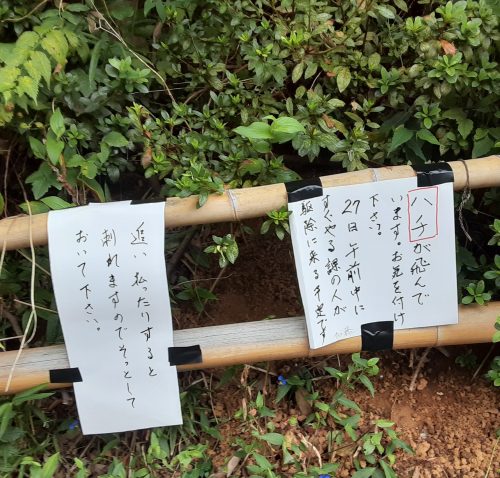 ハチが飛んで
います。お気を付け
下さい。
27日午前中に
すぐやる課の人が
駆除に来る予定です
追い払ったりすると
刺れますのでそっとして
おいて下さい。